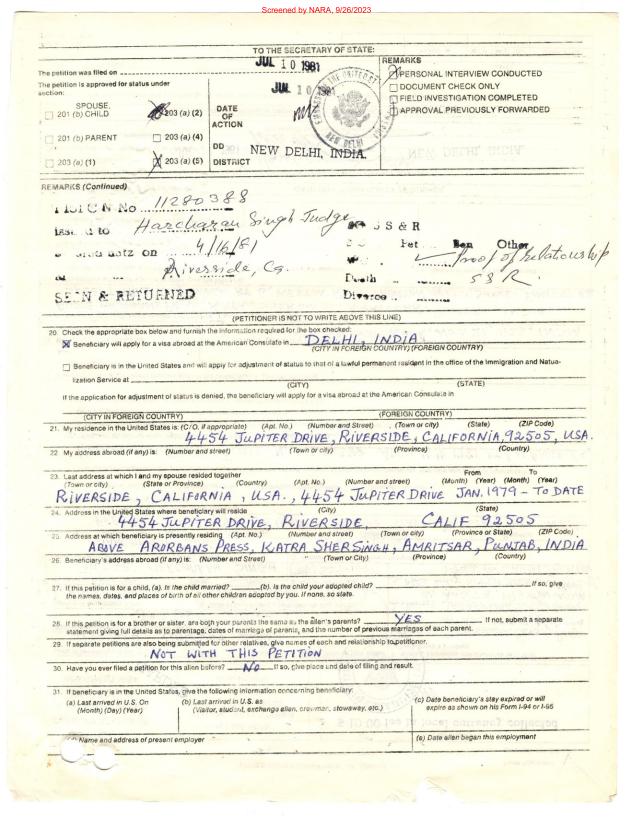 Screened by NARA, 9/26/2023
TO THE SECRETARY OF STATE:
The petition was filed on JUL 10 1981
The petition is approved for status under section:
SPOUSE,
201 (b) CHILD
203 (a) (2)
201 (b) PARENT
203 (a) (4)
203 (a) (1)
203 (a) (5)
DATE OF ACTION
JUL 10
DD
DISTRICT
NEW DELHI, INDIA.
NEW DELHI
REMARKS
PERSONAL INTERVIEW CONDUCTED
DOCUMENT CHECK ONLY
FIELD INVESTIGATION COMPLETED
APPROVAL PREVIOUSLY FORWARDED
REMARKS (Continued)
No 11280388
to Harcharan Singh Judge
on 4/16/81
at Riverside, Ca.
SEEN & RETURNED
S & R
Pet Ben Other
Proof of relationship
Death S & R.
Divorce
(PETITIONER IS NOT TO WRITE ABOVE THIS LINE)
20. Check the appropriate box below and furnish the information required for the box checked:
Beneficiary will apply for a visa abroad at the American Consulate in DELHI, INDIA
(CITY IN FOREIGN COUNTRY) (FOREIGN COUNTRY)
Beneficiary is in the United States and will apply for adjustment of status to that of a lawful permanent resident in the office of the Immigration and Natua-
lization Service at
(CITY) (STATE)
If the application for adjustment of status is denied, the beneficiary will apply for a visa abroad at the American Consulate in
(CITY IN FOREIGN COUNTRY) (FOREIGN COUNTRY)
21. My residence in the United States is: (C/O, if appropriate) (Apt. No.) (Number and Street) (Town or city) (State) (ZIP Code)
4454 JUPITER DRIVE, RIVERSIDE, CALIFORNIA, 92505, USA.
22 My address abroad (if any) is: (Number and Street) (Town or city) (Province) (Country)
23. Last address at which I and my spouse resided together From To
(Town or city) (State or Province) (Country) (Apt. No.) (Number and street) (Month) (Year) (Month) (Year)
RIVERSIDE, CALIFORNIA, USA., 4454 JUPITER DRIVE JAN. 1979 - TO DATE
24. Address in the United States where beneficiary will reside (City) (State)
4454 JUPITER DRIVE, RIVERSIDE, CALIF 92505
25. Address at which beneficiary is presently residing (Apt. No.) (Number and street) (Town or city) (Province or State) (ZIP Code)
ABOVE ARORBANS PRESS, KATRA SHERSINGH, AMRITSAR, PUNJAB, INDIA
26. Beneficiary's address abroad (if any) is: (Number and Street) (Town or City) (Province) (Country)
27. If this petition is for a child, (a). Is the child married? (b). Is the child your adopted child? If so, give
the names, dates, and places of birth of all other children adopted by you. If none, so state.
28. If this petition is for a brother or sister, are both your parents the same as the alien's parents? YES If not, submit a separate
statement giving full details as to parentage, dates of marriage of parents, and the number of previous marriages of each parent.
29. If separate petitions are also being submitted for other relatives, give names of each and relationship to petitioner.
NOT WITH THIS PETITION
30. Have you ever filed a petition for this alien before? NO If so, give place and date of filing and result.
31. If beneficiary is in the United States, give the following information concerning beneficiary:
(a) Last arrived in U.S. On
(Month) (Day) (Year)
(b) Last arrived in U.S. as
(Visitor, student, exchange alien, crewman, stowaway, etc.)
(c) Date beneficiary's stay expired or will
expire as shown on his Form I-94 or I-95
(d) Name and address of present employer
(e) Date alien began this employment